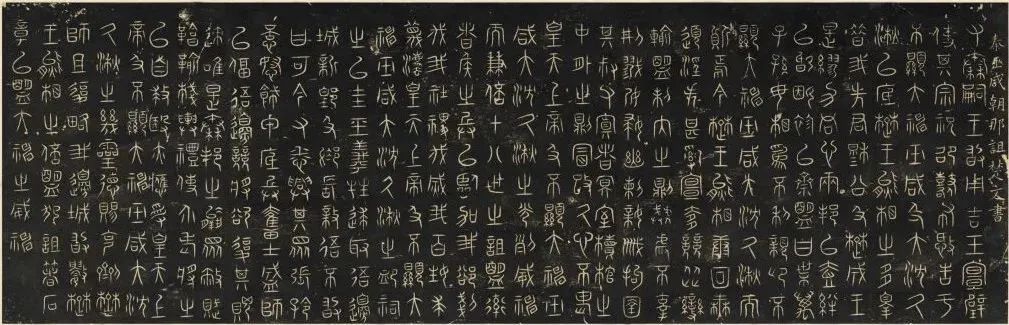 秦巫咸朝那詛楚文書
又秦嗣王敢用吉玉宣璧
使其宗祝邵鼛布憼告于
不顯大神巫咸及大沈久
湫以底楚王熊相之多辠
昔我先君穆公及楚成王
是繆力同心兩邦以壹絆
以婚姻袗以齊盟曰枼萬
子孫毋相為不利親卬不
顯大神巫咸大沈久湫而
質焉今楚王熊相康回無
道淫失甚亂宣侈競從變
輸盟制內之則暴虐不辜
刑戮孕婦幽刺親戚拘圉
其叔父寘者冥室櫝棺之
中外之則冒改久心不畏
皇天上帝及不顯大神巫
咸大沈久湫之光列威神
而兼倍十八世之詛盟率
者侯之兵以臨加我欲剗
伐我社稷伐威我百姓求
蔑法皇天上帝及不顯大
神巫咸大沈久湫之卹祠
之以圭玉羲牲逑取吾邊
城新郢及於長親吾不敢
曰可今又悉興其眾張矜
意怒飾甲底兵奮士盛師
以偪吾邊競將欲復其凶
迹唯是秦邦之羸眾敝賦
鞈輸棧輿禮使介老將之
以自救殹亦應受皇天上
帝及不顯大神巫咸大沈
久湫之幾靈德賜克劑楚
師且復略我邊城敢數楚
王熊相之倍盟犯詛著石
章以盟大神之威神